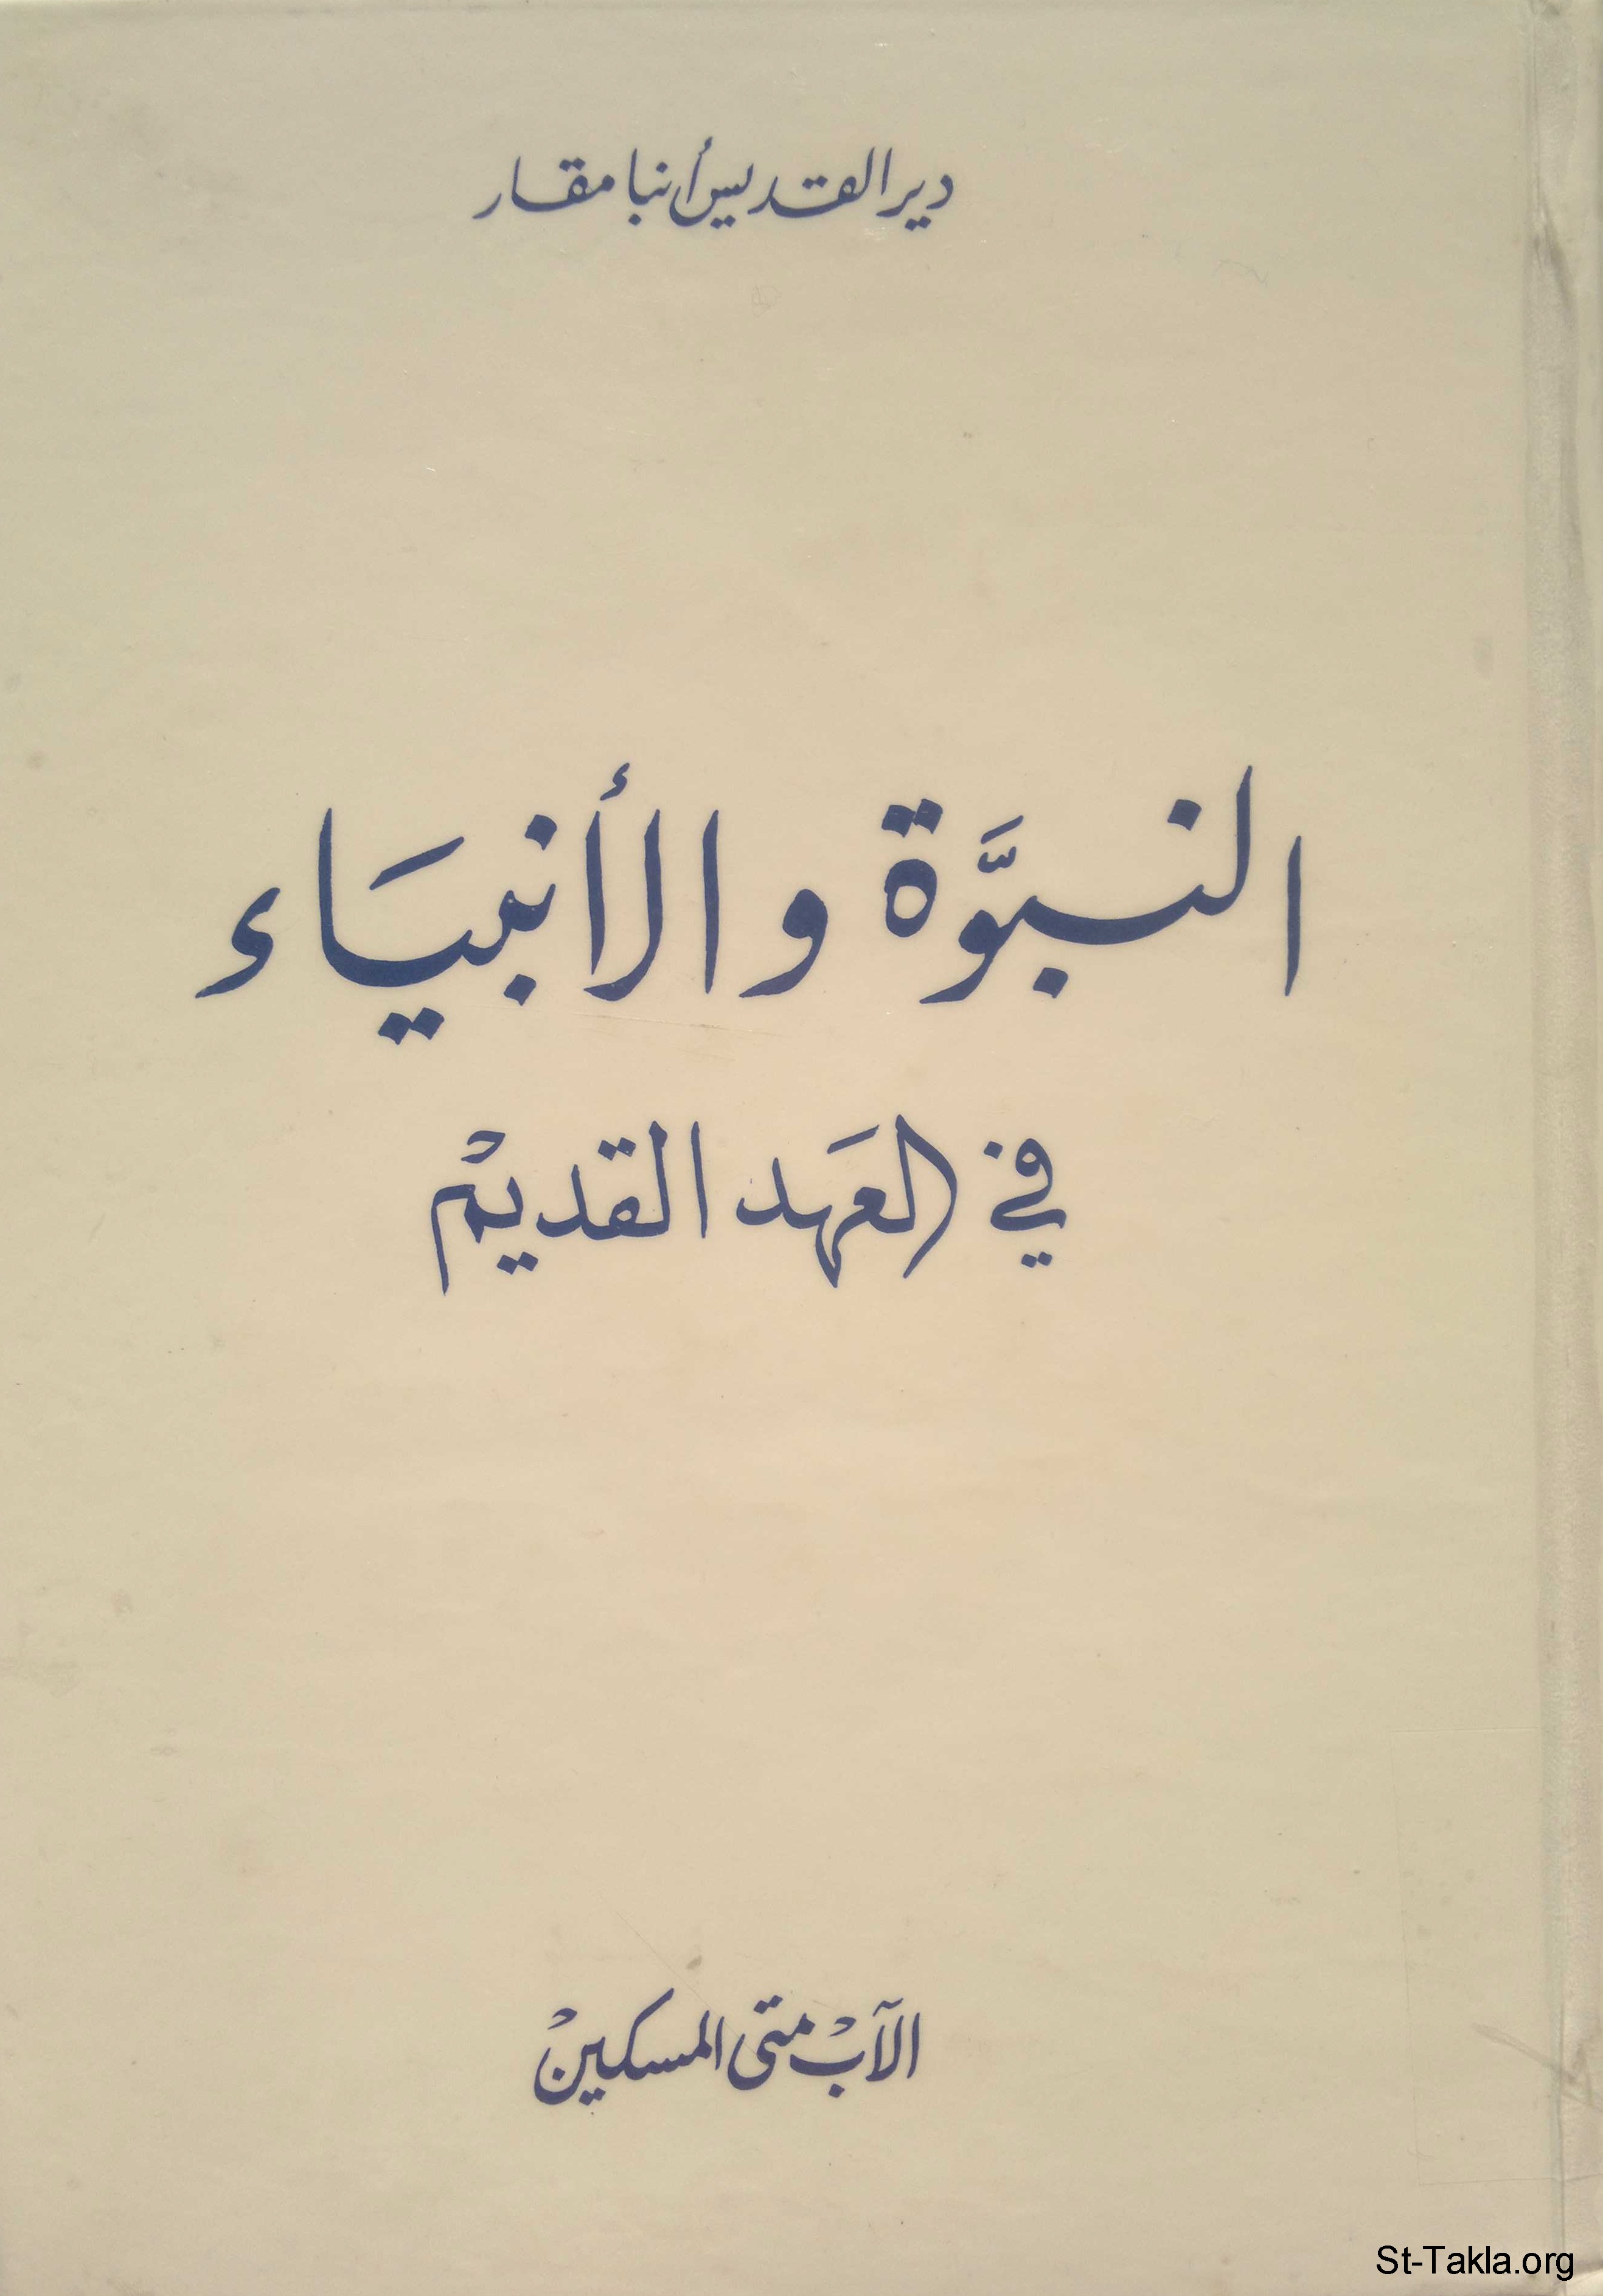 دير القديس أنبا مقار
النبوَّة والأنبيَاء
في العَهد القديمْ
الآبْ متى المسكينْ
St-Takla.org